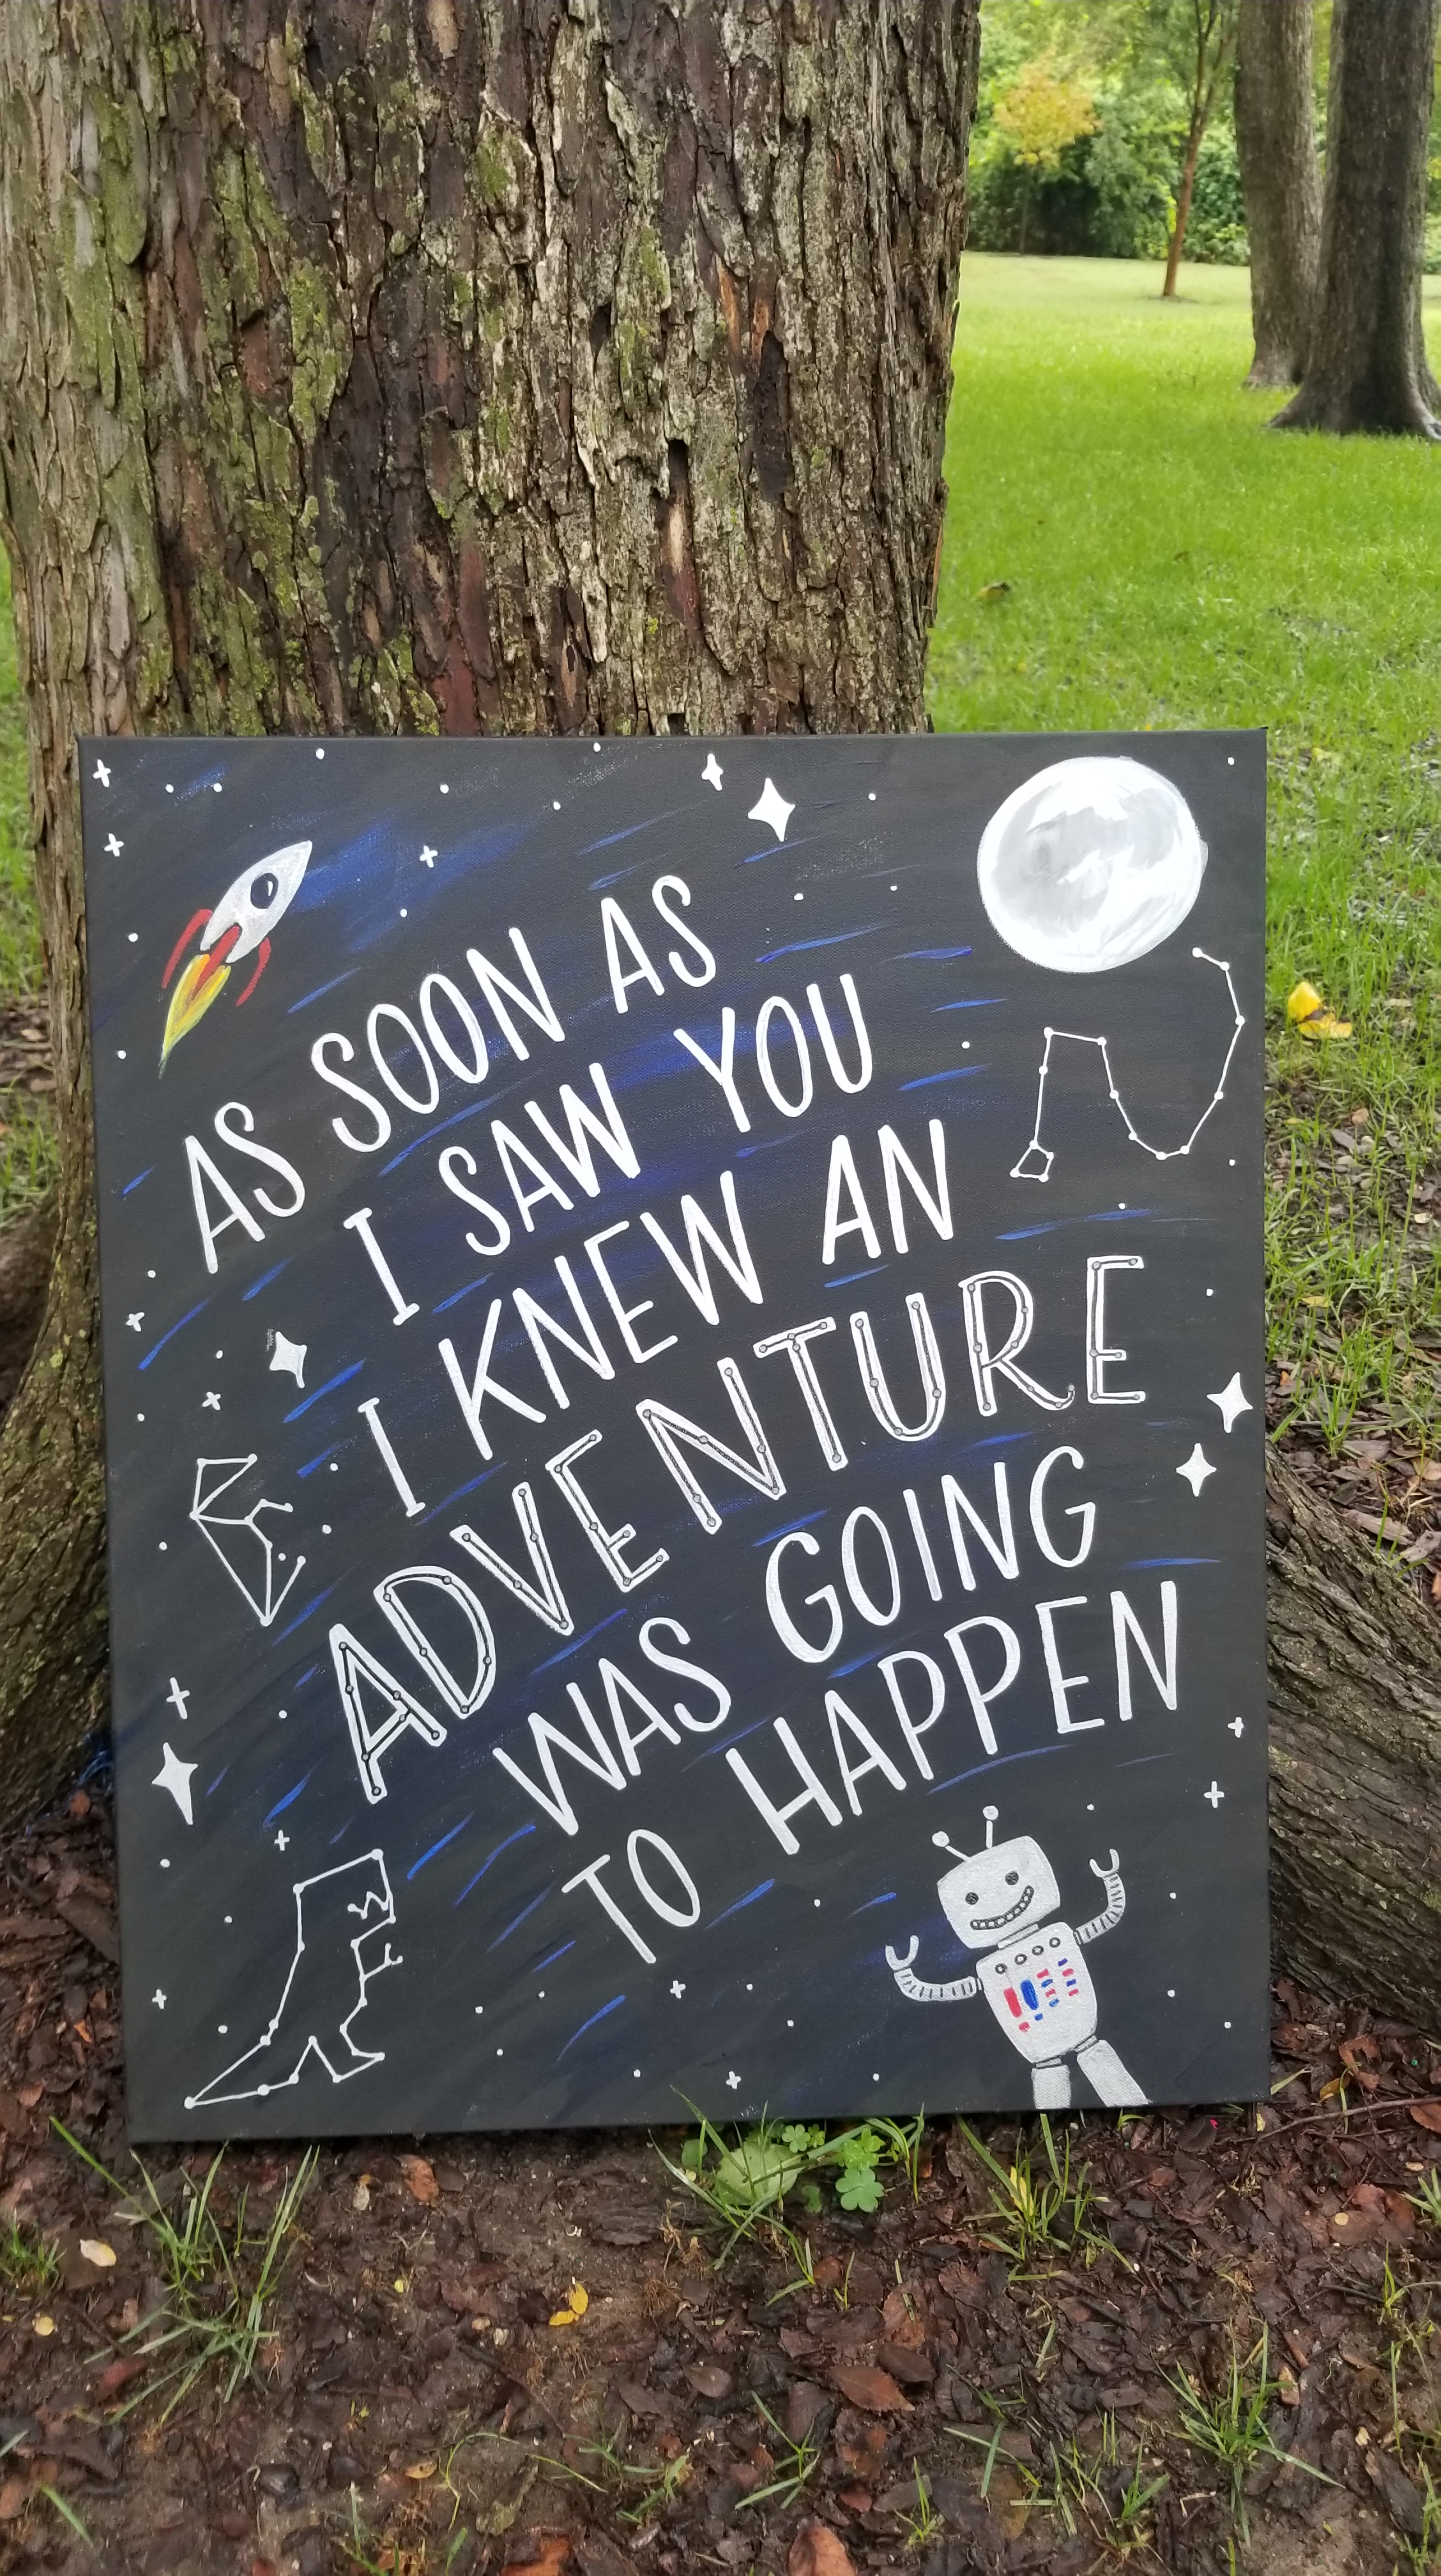 AS SOON AS
I SAW YOU
I KNEW AN
ADVENTURE
WAS GOING
TO HAPPEN